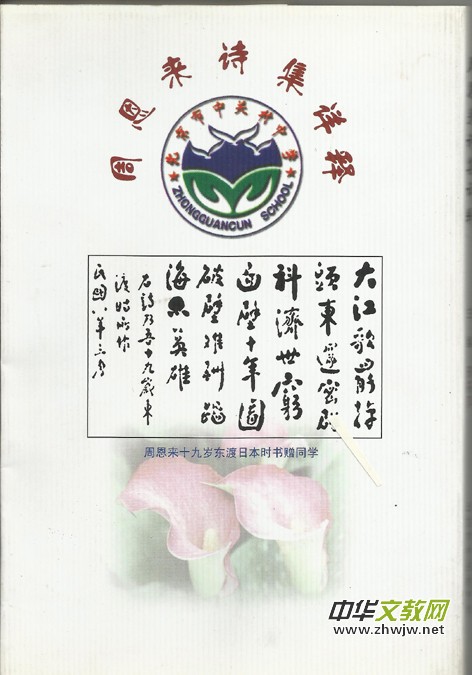 周恩来诗集详释
北京市中关村中学
ZHONGGUANCUN SCHOOL
大江歌罷掉
頭東邃密群
科濟世窮
面壁十年圖
破壁難酬蹈
海亦英雄
右詩乃吾十九歲東
渡時所作
民國八年三月
周恩来十九岁东渡日本时书赠同学
中华文教网
www.zhwjw.net